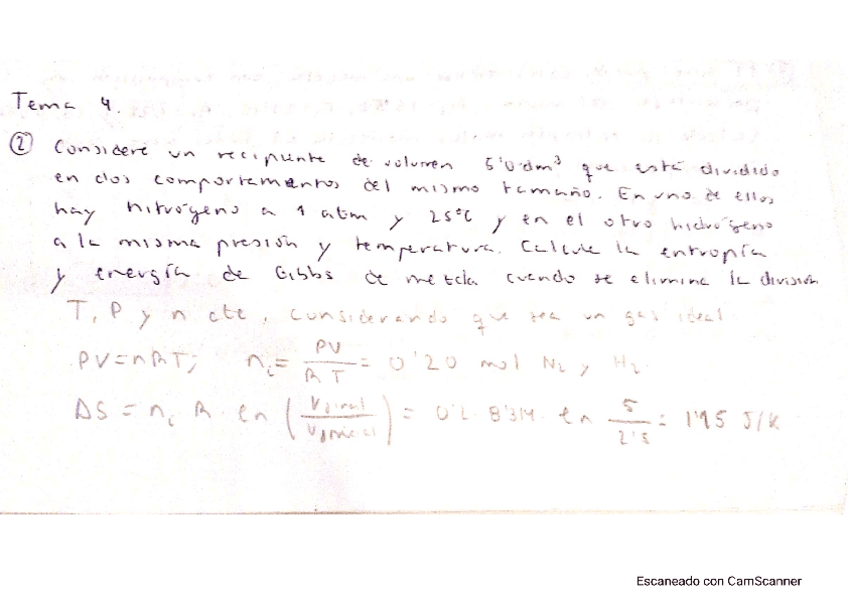 Tema 4.
② Considere un recipiente de volumen 5'0 dm³ que está dividido
en dos comportamentos del mismo tamaño. En uno de ellos
hay nitrógeno a 1 atm y 25ºC y en el otro hidrógeno
a la misma presión y temperatura. Calcule la entropía
y energía de Gibbs de mezcla cuando se elimina la división
T, P y n cte, considerando que sea un gas ideal
PV=nRT; nᵢ = PV/RT = 0'20 mol N₂ y H₂.
ΔS = nᵢ R · ln (Vfinal/Vinicial) = 0'2 · 8'314 · ln 5/2'5 = 1'15 J/K
Escaneado con CamScanner